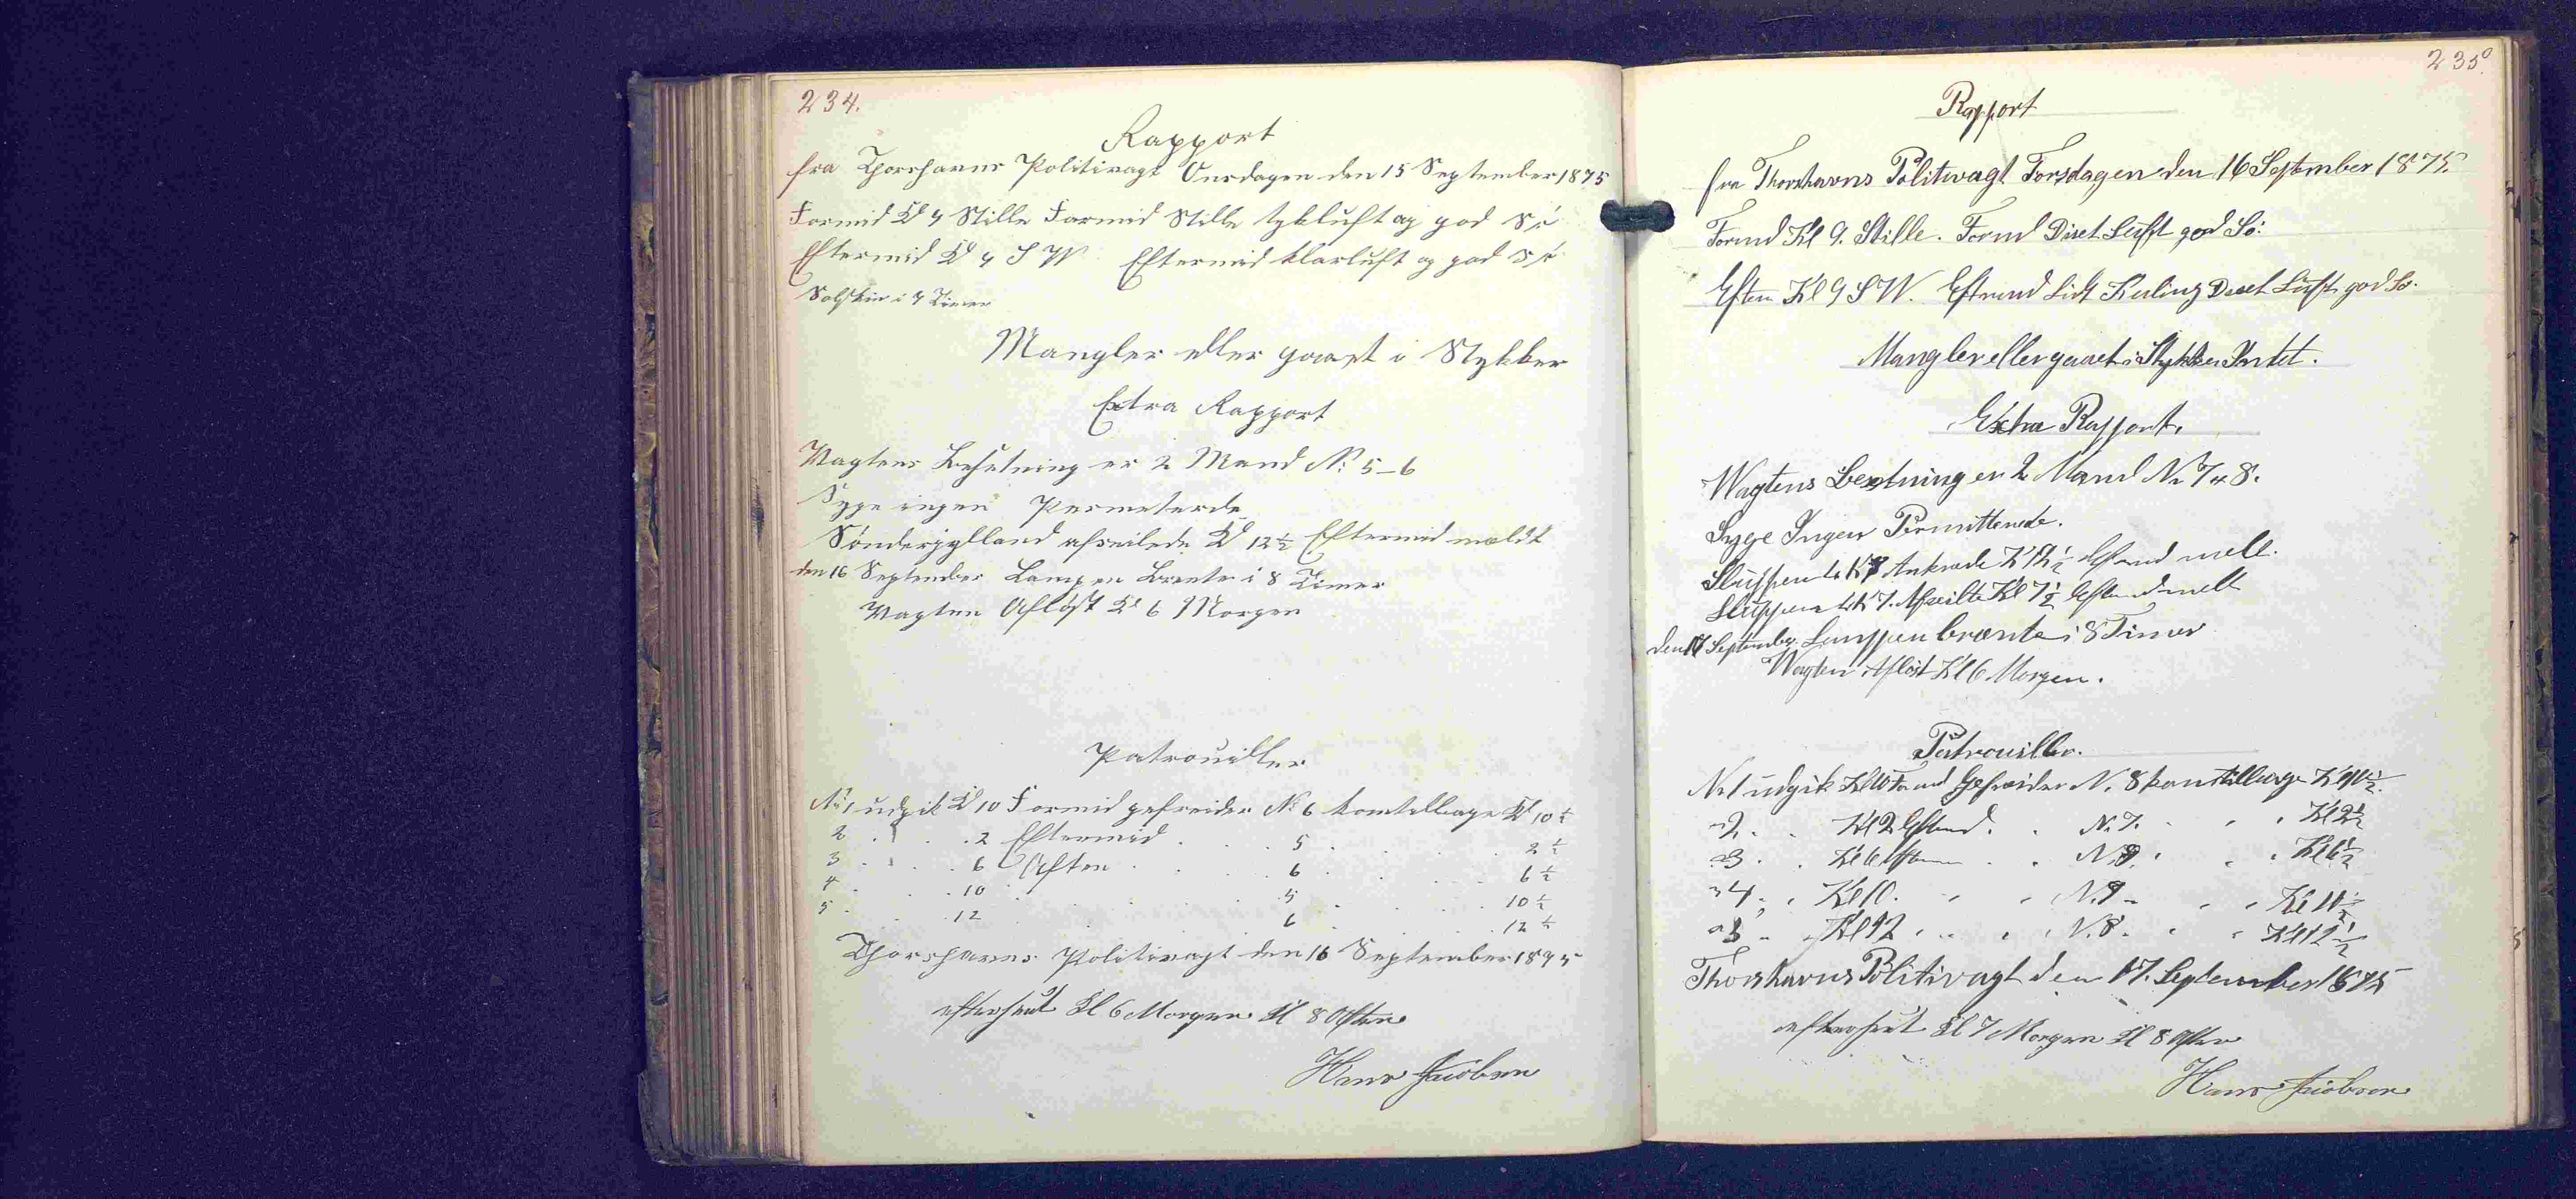 234.
Rapport
fra Thorshavns Politivagt Onsdagen den 15 September 1875
Formid Kl 9 Stille Formid Stille tykluft og god Sö
Eftermid Kl 9 S W Eftermid klarluft og god Sö
Solskin i 9 Timer
Mangler eller gaaet i Stykker
Extra Rapport
Vagtens Besetning er 2 Mand No 5-6
Syge ingen Permeterde
Sönderjylland afseilede Kl 12½ Eftermid meldt
den 16 September Lampen Brente i 8 Timer
Vagten Aflöst Kl 6 Morgen
Patrouiller
No 1 udgik Kl 10 Formid gefreider No 6 kom tilbage Kl 10½
2 . . . 2 Eftermid . . . 5 . . . 2½
3 . . . 6 Aften . . . 6 . . . 6½
4 . . . 10 . . . 5 . . . 10½
5 . . . 12 . . . 6 . . . 12½
Thorshavns Politivagt den 16 September 1875
efterseet Kl 6 Morgen Kl 8 Aften
Hans Jacobsen
235.
Rapport
fra Thorshavns Politivagt Torsdagen den 16 September 1875.
Formd Kl 9. Stille. Formd Diset Luft god Sö.
Eftm Kl 9 S W. Eftmd Lidt Kuling Diset Luft god Sö.
Mangler eller gaaet i Stykker Intet.
Extra Rapport.
Wagtens Besetning er 2 Mand No 7 & 8.
Syge Ingen Permitterede.
Sluppen Ankrede Kl 12½ Eftmd melt.
Sluppen Afseilte Kl 7½ Eftmd melt
den 17 September Lamppen brænte i 8 Timer
Wagten Aflöst Kl 6 Morgen.
Patrouiller.
No 1 udgik Kl 10 Formd Gefreider No 8 kom tilbage Kl 10½
" 2 . . Kl 2 Eftmd. . No 7. . . Kl 2½
" 3 . . Kl 6 Aften . . No 8. . . Kl 6½
" 4 . . Kl 10. . . No 7 . . Kl 10½
" 5 . . Kl 12 . . . No 8. . . Kl 12½
Thorshavns Politivagt den 17. September 1875
efterseet Kl 7 Morgen Kl 8 Aften
Hans Jacobsen